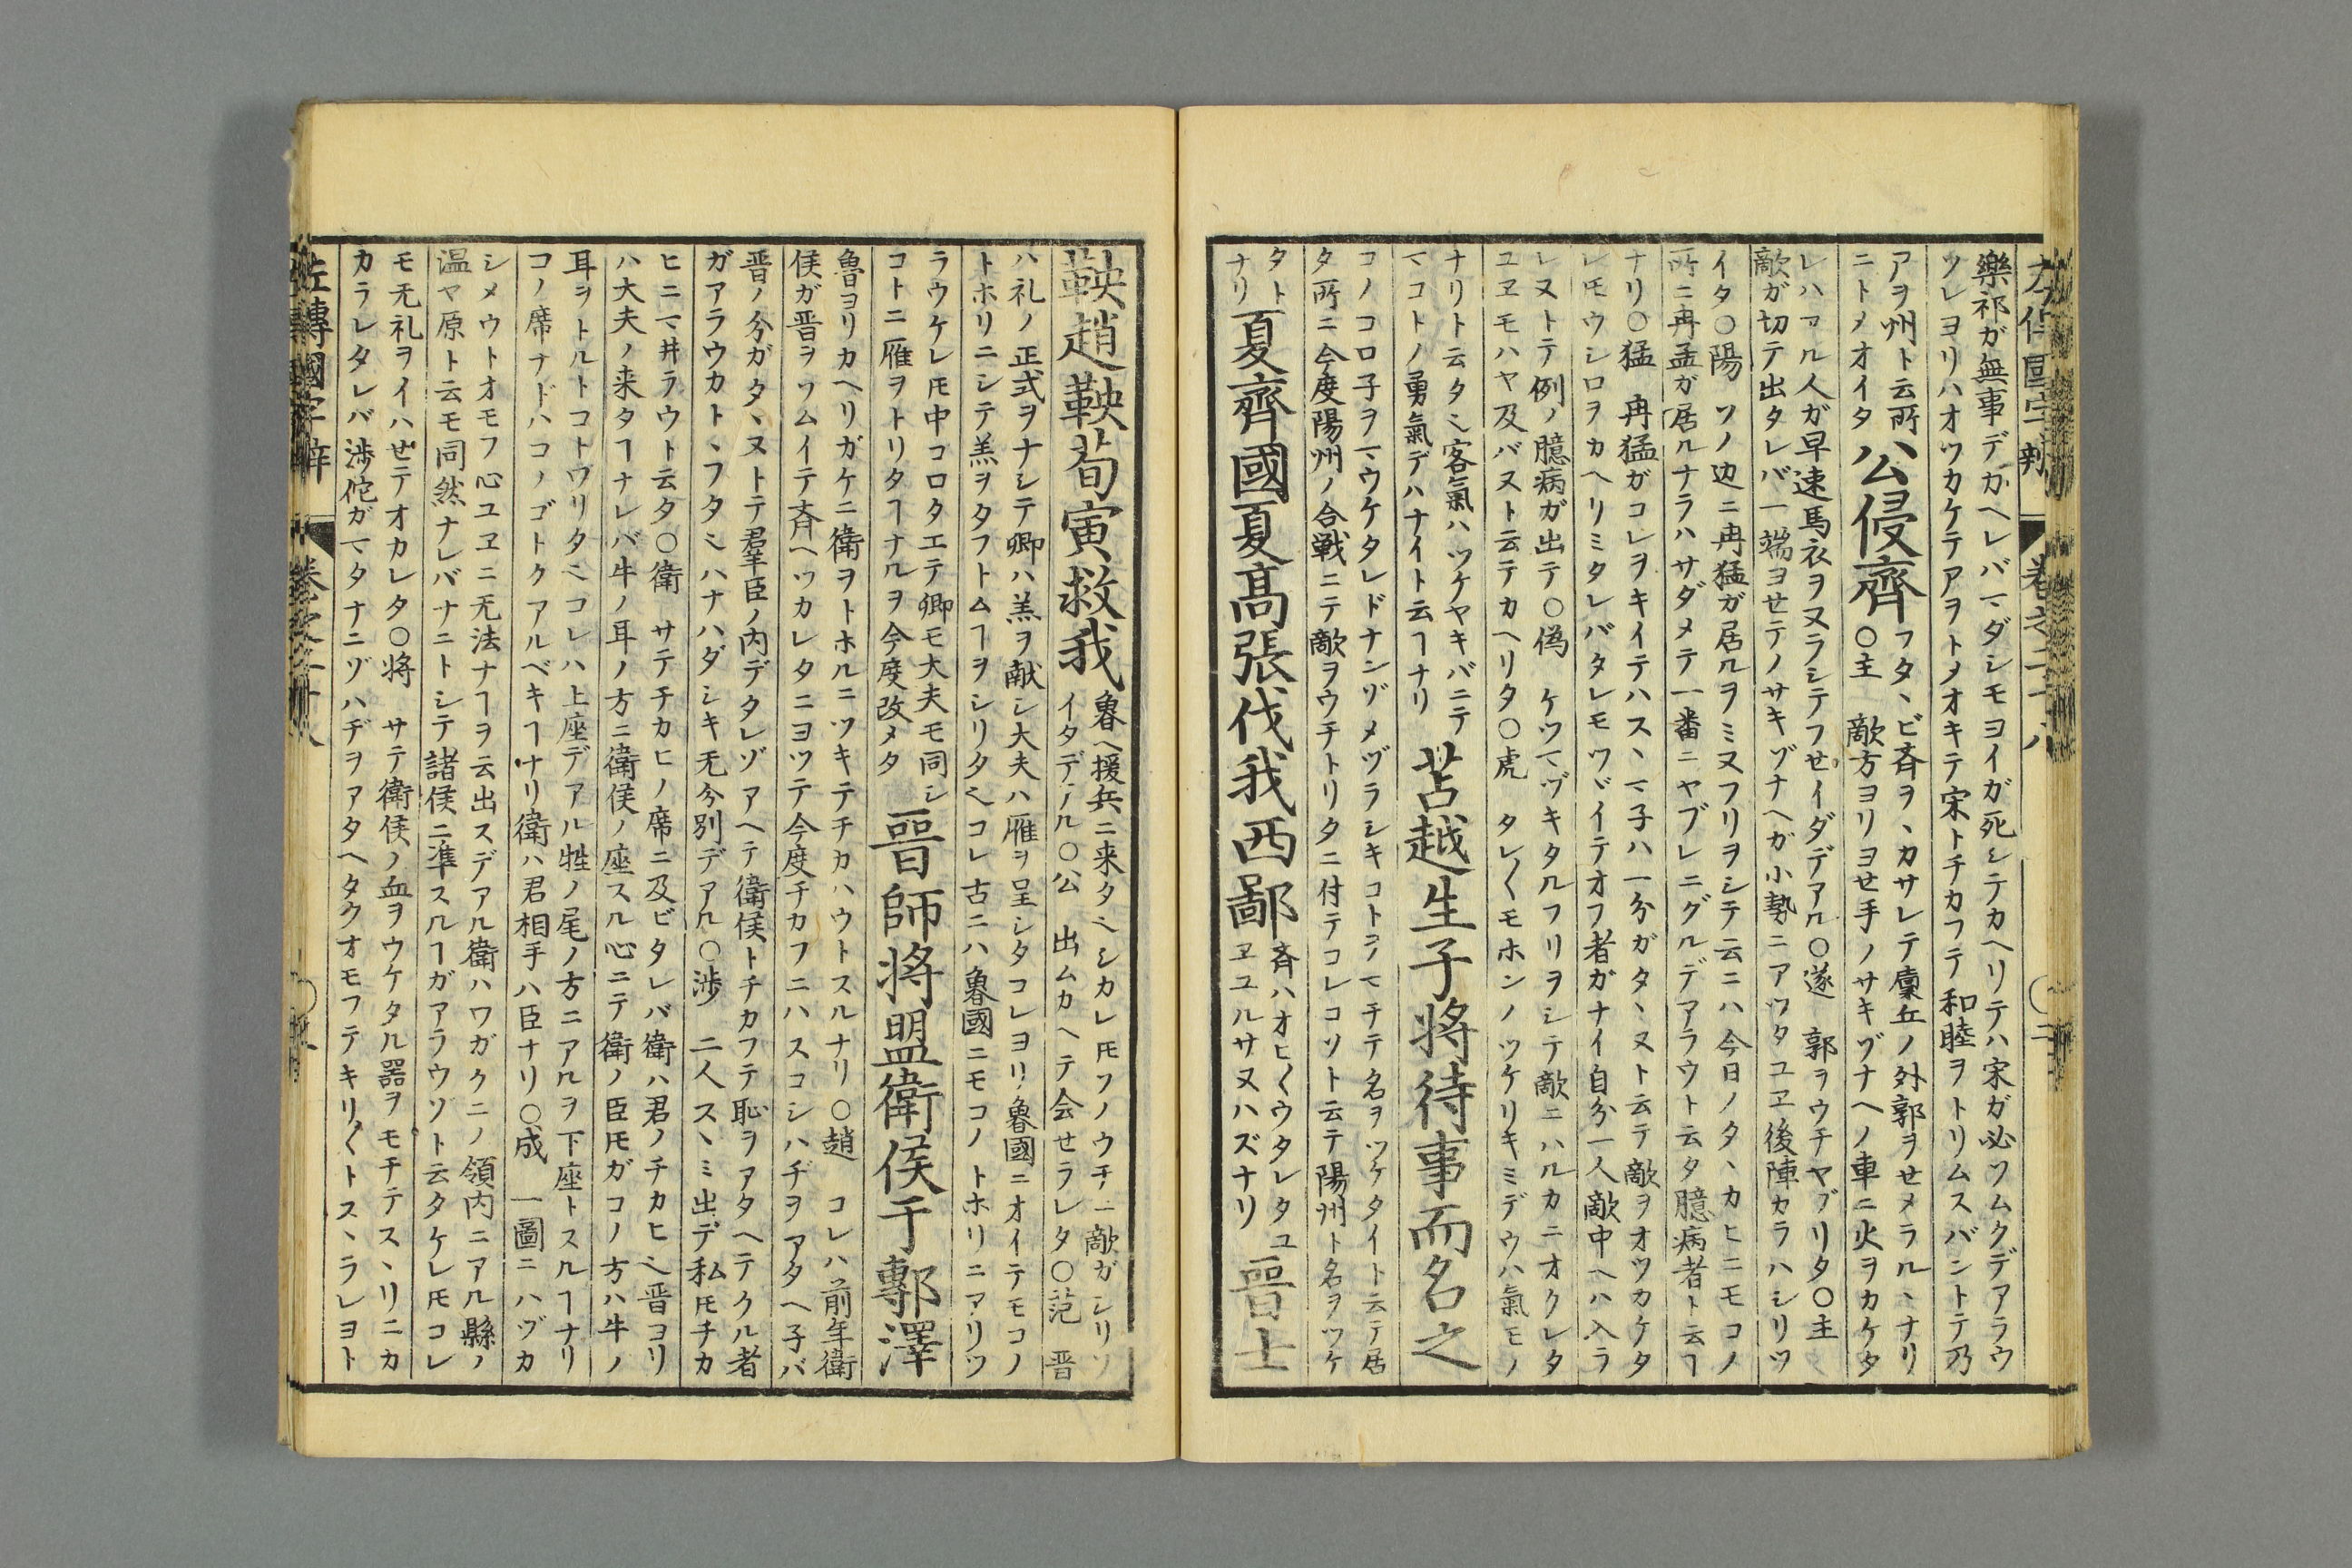 樂祁ガ無事デカヘレバマダシモヨイガ死シテカヘリテハ宋ガ必ソムクデアラウ
ソレヨリハオツカケテアヲトメオキテ宋トチカフテ和睦ヲトリムスバントテ乃
アヲ州ト云所
ニトメオイタ
公侵齊
フタヽビ斉ヲヽカサレテ廩丘ノ外郭ヲせメラルヽナリ
○主 敵方ヨリヨせ手ノサキヅナヘノ車ニ火ヲカケタ
レハヿル人ガ早速馬衣ヲヌラシテフせイダデアル○遂 郭ヲウチヤブリタ○主
敵ガ切テ出タレバ一端ヨせテノサキヅナヘガ小勢ニアツタユヱ後陣カラハシリツ
イタ○陽 ソノ辺ニ冉猛ガ居ルヲミヌフリヲシテ云ニハ今日ノタヽカヒニモコノ
所ニ冉孟ガ居ルナラハサダメテ一番ニヤブレニグルデアラウト云タ臆病者ト云ヿ
ナリ○猛 冉猛ガコレヲキイテハスヽマ子ハ一分ガタヽヌト云テ敵ヲオツカケタ
レモウシロヲカヘリミタレバタレモツヾイテオフ者ガナイ自分一人敵中ヘハ入ラ
レヌトテ例ノ臆病ガ出テ○偽 ケツマヅキタルフリヲシテ敵ニハルカニオクレタ
ユヱモハヤ及バヌト云テカヘリタ○虎 タレ〱モホンノツケリキミデウハ氣モノ
ナリト云タ〻客氣ハツケヤキバニテ
マコトノ勇氣デハナイト云ヿナリ
苫越生子将待事而名之
コノコロ子ヲマウケタレドナンゾメヅラシキコトヲマチテ名ヲツケタイト云テ居
タ所ニ今度陽州ノ合戦ニテ敵ヲウチトリタニ付テコレコソト云テ陽州ト名ヲツケ
タト
ナリ
夏齊國夏髙張伐我西鄙
斉ハオヒ〱ウタレタユ
ヱユルサヌハズナリ
晋士
鞅趙鞅荀寅救我
魯ヘ援兵ニ来タ〻シカレ𪜈ソノウチニ敵ガシリソ
イタデアル○公 出ムカヘテ会せラレタ○范 晋
ハ礼ノ正式ヲナシテ卿ハ羔ヲ献シ大夫ハ雁ヲ呈シタコレヨリ魯國ニオイテモコノ
トホリニシテ羔ヲタフトムヿヲシリタ〻コレ古ニハ魯國ニモコノトホリニアリツ
ラウケレ𪜈中コロタエテ卿モ大夫モ同シ
コトニ雁ヲトリタヿナルヲ今度改メタ
晋師将盟衛侯于鄟澤
魯ヨリカヘリガケニ衛ヲトホルニツキテチカハウトスルナリ○趙 コレハ前年衛
侯ガ晋ヲソムイテ斉ヘツカレタニヨツテ今度チカフニハスコシハヂヲアタヘ子バ
晋ノ分ガタヽヌトテ君羊臣ノ内デタレゾアヘテ衛侯トチカフテ恥ヲアタヘテクル者
ガアラウカトヽフタ〻ハナハダシキ无分別デアル○渉 二人スヽミ出デ私𪜈チカ
ヒニマ井ラウト云タ○衛 サテチカヒノ席ニ及ビタレバ衛ハ君ノチカヒ〻晋ヨリ
ハ大夫ノ来タヿナレバ牛ノ耳ノ方ニ衛侯ノ座スル心ニテ衛ノ臣𪜈ガコノ方ハ牛ノ
耳ヲトルトコトワリタ〻コレハ上座デアル牲ノ尾ノ方ニアルヲ下座トスルヿナリ
コノ席ナドハコノゴトクアルベキヿナリ衛ハ君相手ハ臣ナリ○成 一圖ニハヅカ
シメウトオモフ心ユヱニ无法ナヿヲ云出スデアル衛ハワガクニノ領内ニアル縣ノ
温ヤ原ト云モ同然ナレバナニトシテ諸侯ニ準スルヿガアラウゾト云タケレ𪜈コレ
モ无礼ヲイハせテオカレタ○将 サテ衛侯ノ血ヲウケタル器ヲモチテスヽリニカ
カラレタレバ渉佗ガマタナニゾハヂヲアタヘタクオモフテキリ〱トスヽラレヨト
左傳國字辨 巻之二十八